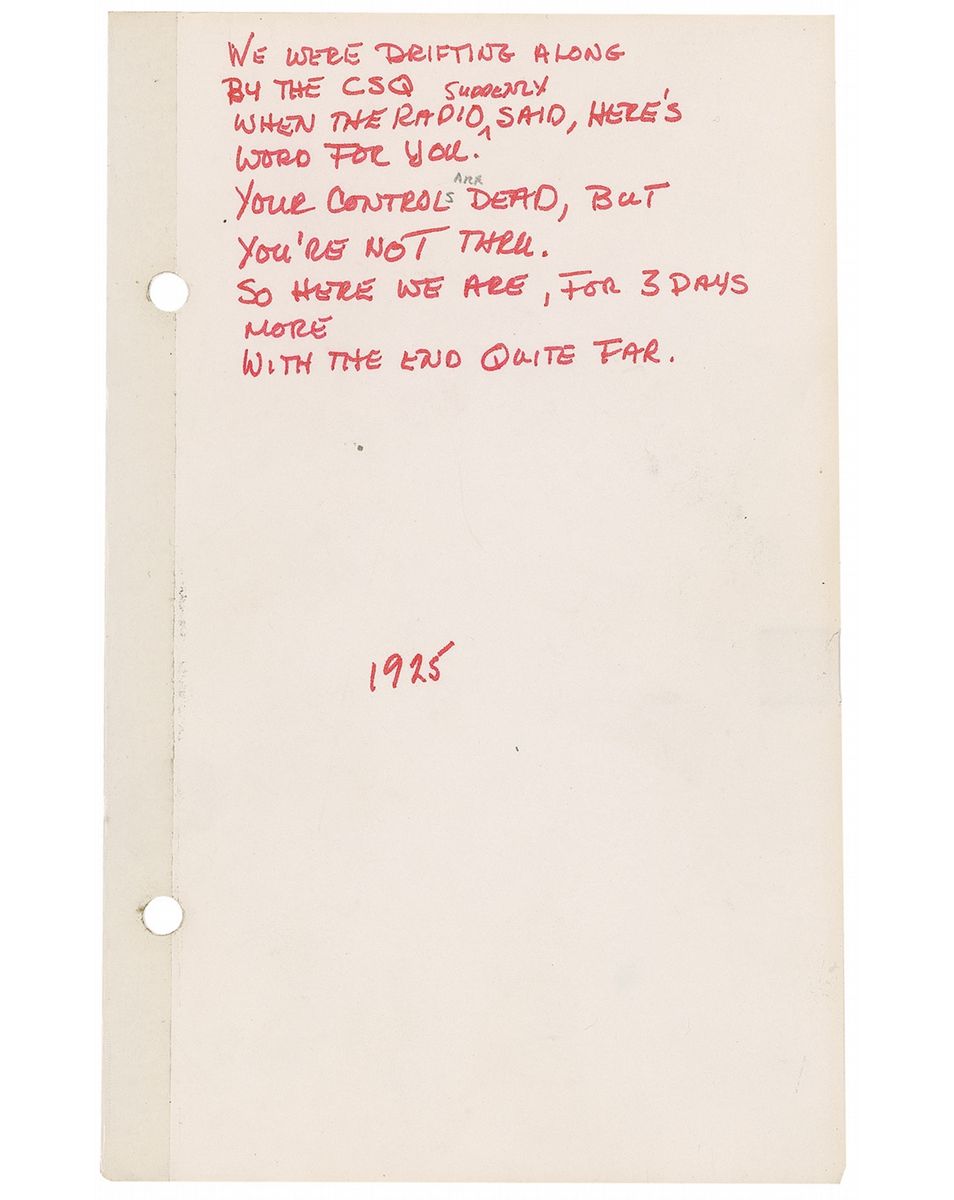 WE WERE DRIFTING ALONG
BY THE CSQ SUDDENLY
WHEN THE RADIO ^ SAID, HERE'S
WORD FOR YOU.
ARR
YOUR CONTROLS DEAD, BUT
YOU'RE NOT THRU.
SO HERE WE ARE, FOR 3 DAYS
MORE
WITH THE END QUITE FAR.
1925